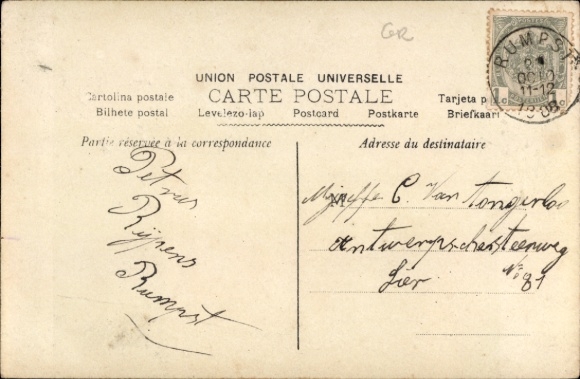 GR
RUMPST
11-12
1908
1
UNION POSTALE UNIVERSELLE
Cartolina postale CARTE POSTALE Tarjeta
Bilhete postal Levelezo-lap Postcard Postkarte Briefkaart
Partie réservée à la correspondance
Petrus
Rijpens
Rumpst
Adresse du destinataire
M
C. Van Tongerloo
Antwerpschesteenweg
No 81
Lier